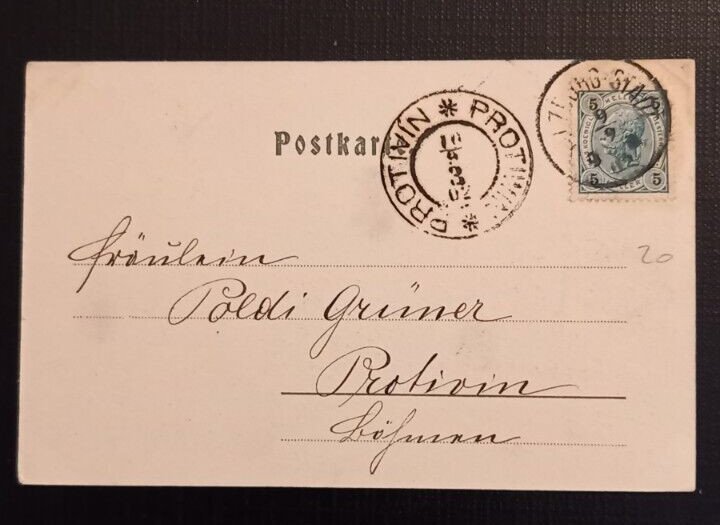 Postkarte
PROTIVÍN * PROTIWIN *
5 HELLER 5
5 HELLER 5
20
Fräulein
Poldi Grüner
Protivin
Böhmen